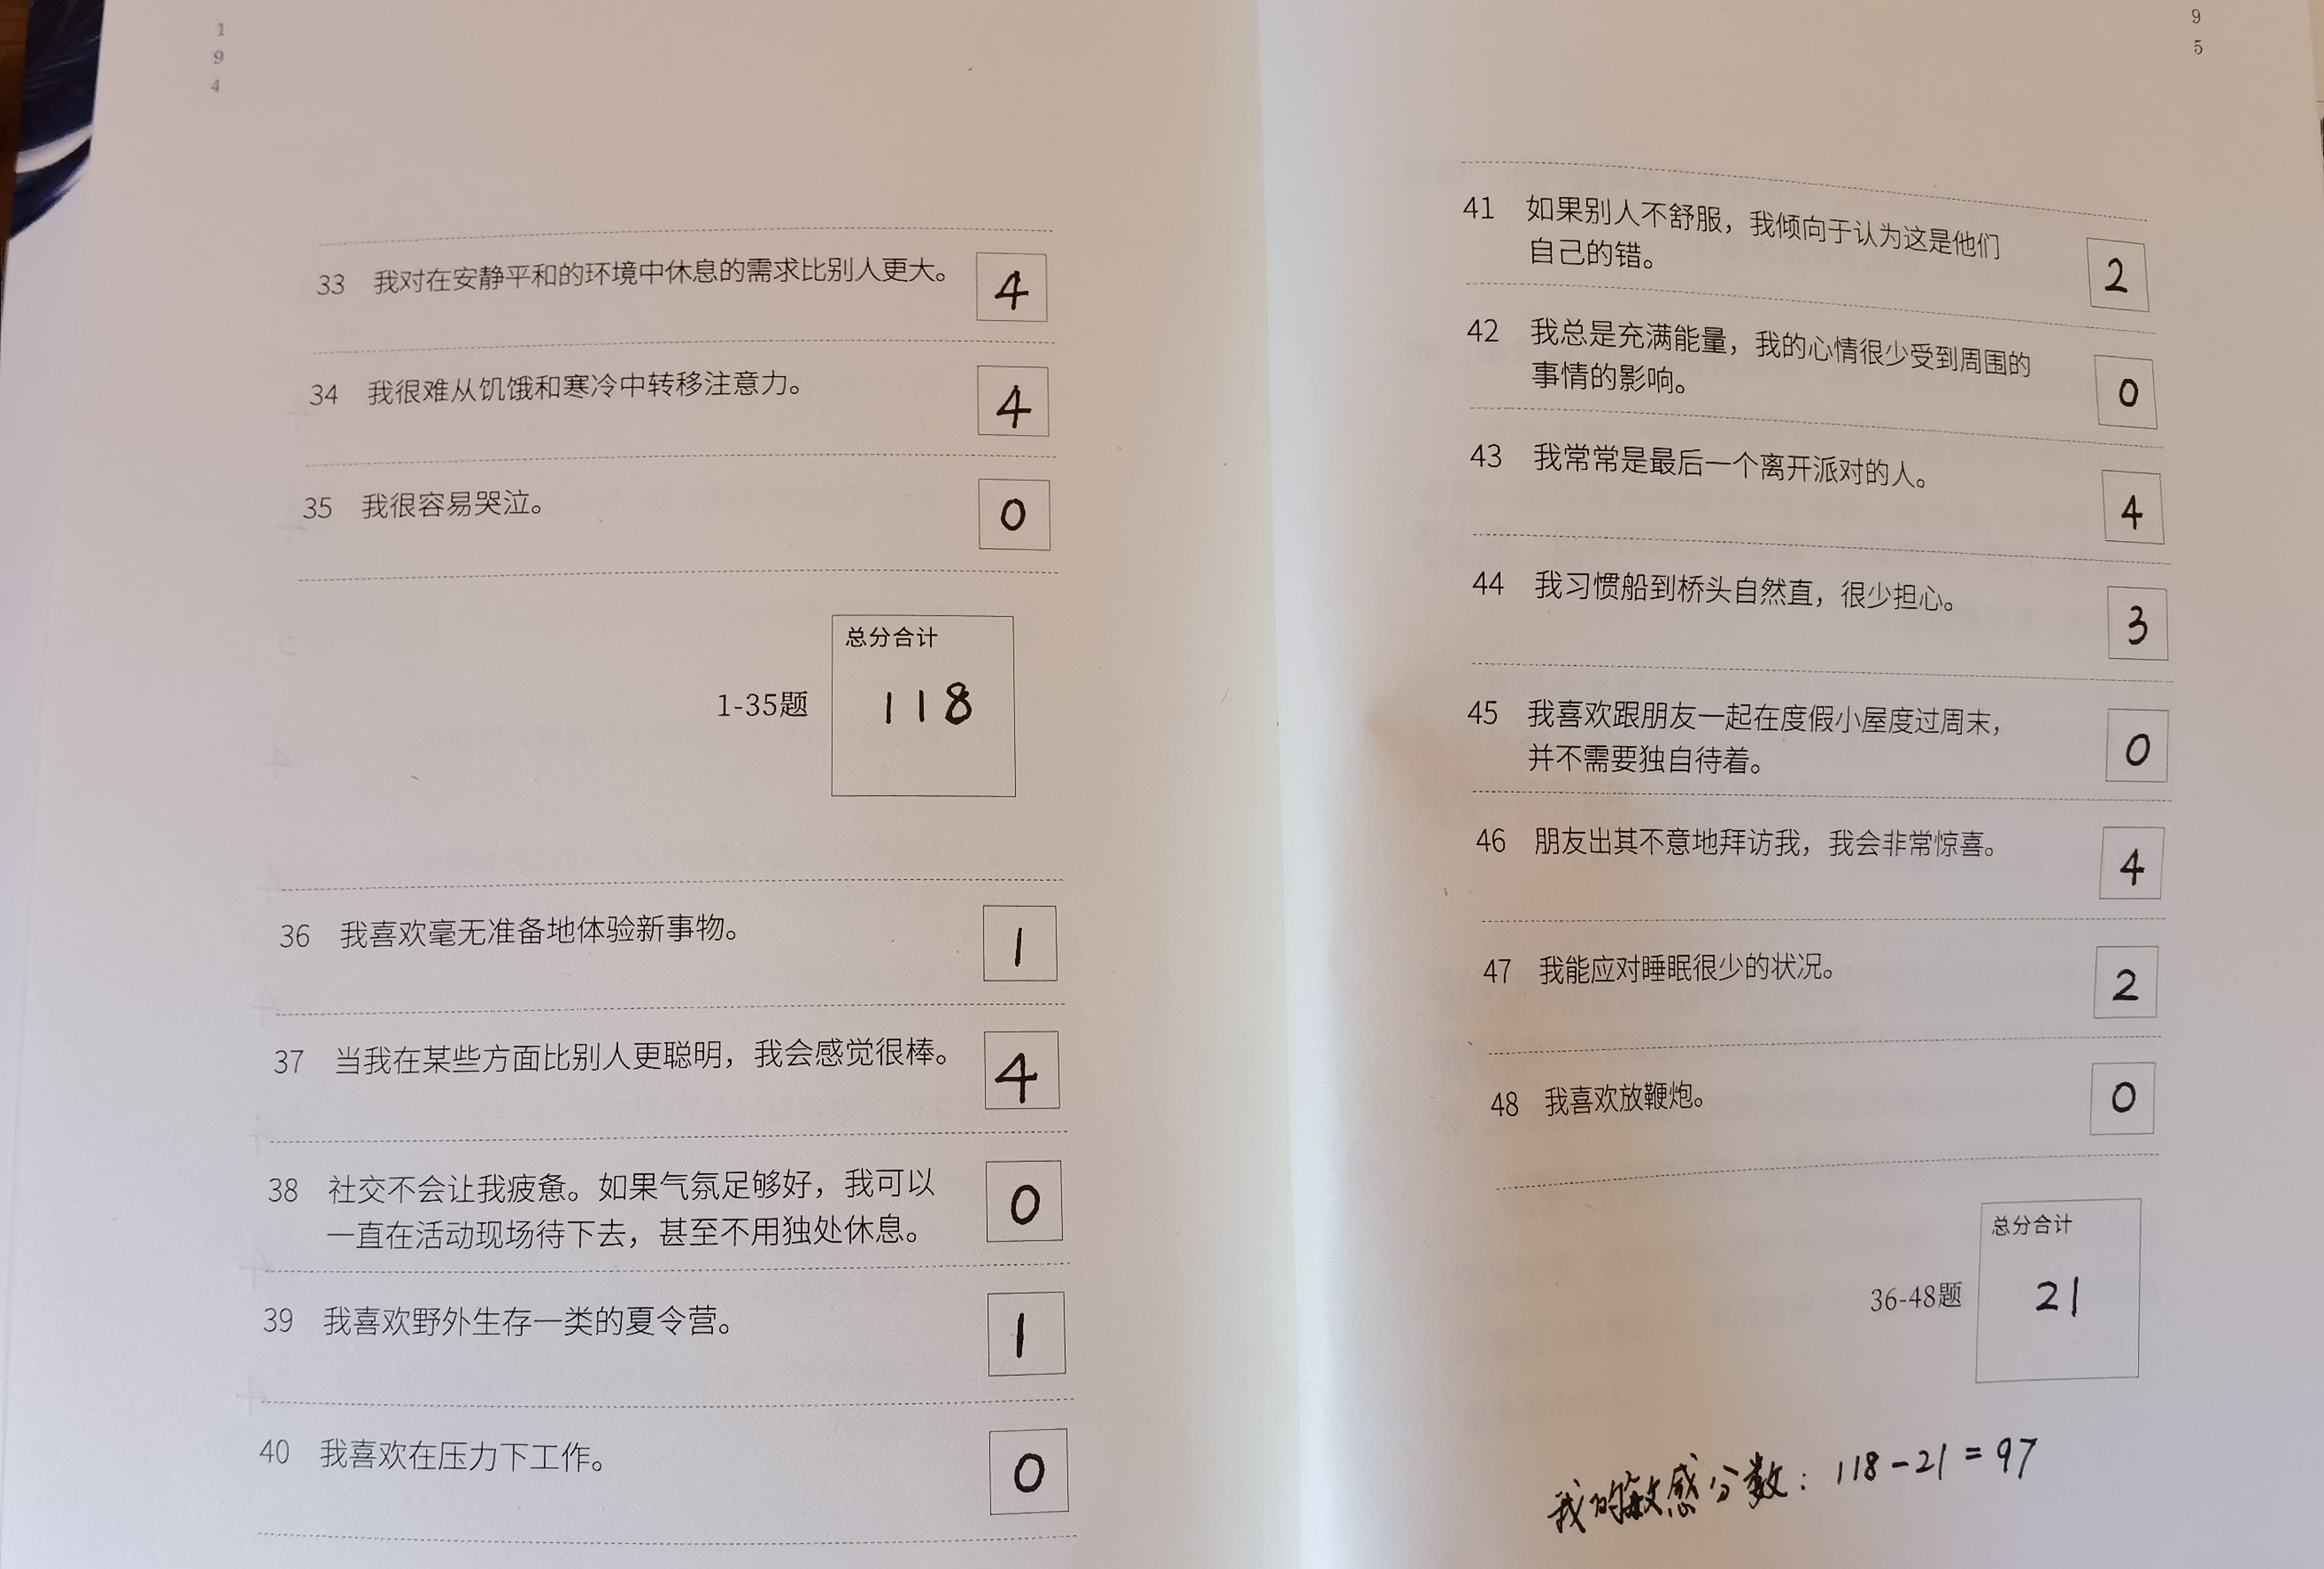 1
9
4
33 我对在安静平和的环境中休息的需求比别人更大。 4
34 我很难从饥饿和寒冷中转移注意力。 4
35 我很容易哭泣。 0
总分合计
1-35题 118
36 我喜欢毫无准备地体验新事物。 1
37 当我在某些方面比别人更聪明，我会感觉很棒。 4
38 社交不会让我疲惫。如果气氛足够好，我可以
一直在活动现场待下去，甚至不用独处休息。 0
39 我喜欢野外生存一类的夏令营。 1
40 我喜欢在压力下工作。 0
9
5
41 如果别人不舒服，我倾向于认为这是他们
自己的错。 2
42 我总是充满能量，我的心情很少受到周围的
事情的影响。 0
43 我常常是最后一个离开派对的人。 4
44 我习惯船到桥头自然直，很少担心。 3
45 我喜欢跟朋友一起在度假小屋度过周末，
并不需要独自待着。 0
46 朋友出其不意地拜访我，我会非常惊喜。 4
47 我能应对睡眠很少的状况。 2
48 我喜欢放鞭炮。 0
总分合计
36-48题 21
我的敏感分数：118-21=97